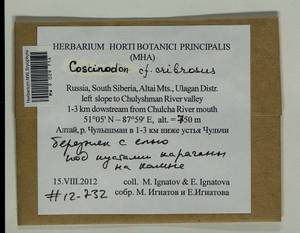 HERBARIUM HORTI BOTANICI PRINCIPALIS
(MHA)
Coscinodon cf. cribrosus
Russia, South Siberia, Altai Mts., Ulagan Distr.
left slope to Chulyshman River valley
1-3 km dowstream from Chulcha River mouth
51°05' N – 87°59' E, alt. = 750 m
Алтай, р. Чулышман в 1-3 км ниже устья Чульчи
березняк с елью
под кустами караганы
на камне
15.VIII.2012 coll. M. Ignatov & E. Ignatova
#12-232 собр. М. Игнатов и Е.Игнатова